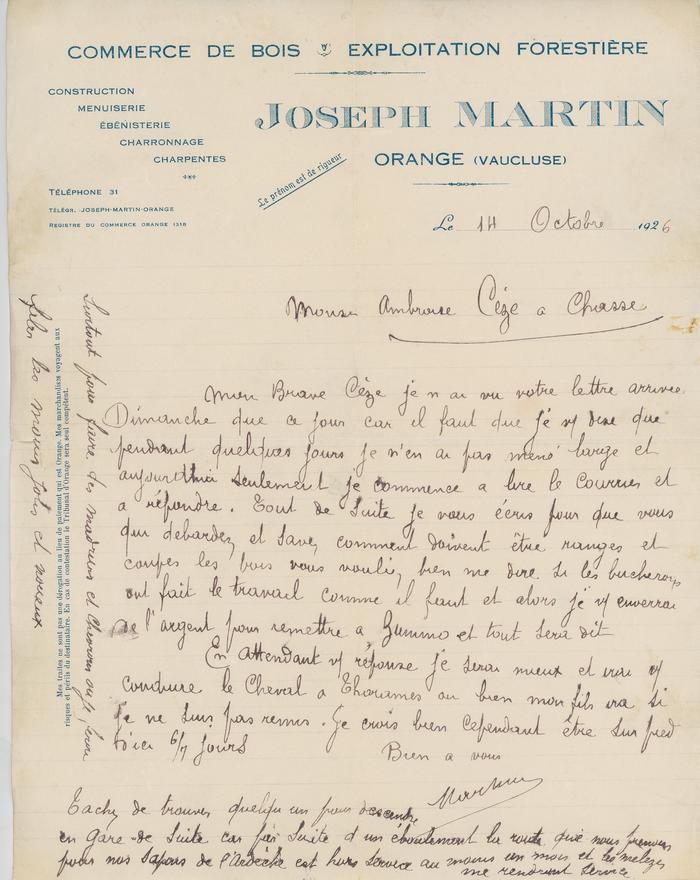 COMMERCE DE BOIS EXPLOITATION FORESTIÈRE
CONSTRUCTION
MENUISERIE
ÉBÉNISTERIE
CHARRONNAGE
CHARPENTES
TÉLÉPHONE 31
TÉLÉGR. JOSEPH-MARTIN-ORANGE
REGISTRE DU COMMERCE ORANGE 1318
Le prénom est de rigueur
JOSEPH MARTIN
ORANGE (VAUCLUSE)
Le 14 Octobre 1926
Ambroise Cèze a Chasse
Mon Brave Cèze je n ai vu votre lettre arrivee
Dimanche que ce jour car il faut que je vs dise que
pendant quelques jours je n'en ai pas mené large et
aujourdhui seulement je commence a lire le Courrier et
a répondre. Tout de Suite je vous écris pour que vous
qui debardez et savez comment doivent être ranges et
coupes les bois vous vouliez bien me dire si les bucherons
ont fait le travail comme il faut et alors je vs enverrai
de l'argent pour remettre a Zummo et tout sera dit
En attendant vs réponse je serai mieux et irai vs
conduire le Cheval a Thorames ou bien mon fils ira si
je ne suis pas remis. Je crois bien cependant être sur pied
d'ici 6/7 jours
Bien a vous
Martin
Tachez de trouver quelqu un pour descendre
en gare de suite car par suite d un éboulement la route que nous prenons
pour nos sapins de l'ardèche est hors service au moins un mois et les melezes
me rendront service
Surtout pour faire des madriers et chevrons
filer les moins jolis et noueux
Mes traites ne sont pas une dérogation au lieu de paiement qui est Orange. Mes marchandises voyagent aux
risques et périls du destinataire. En cas de contestation le Tribunal d'Orange sera seul compétent.